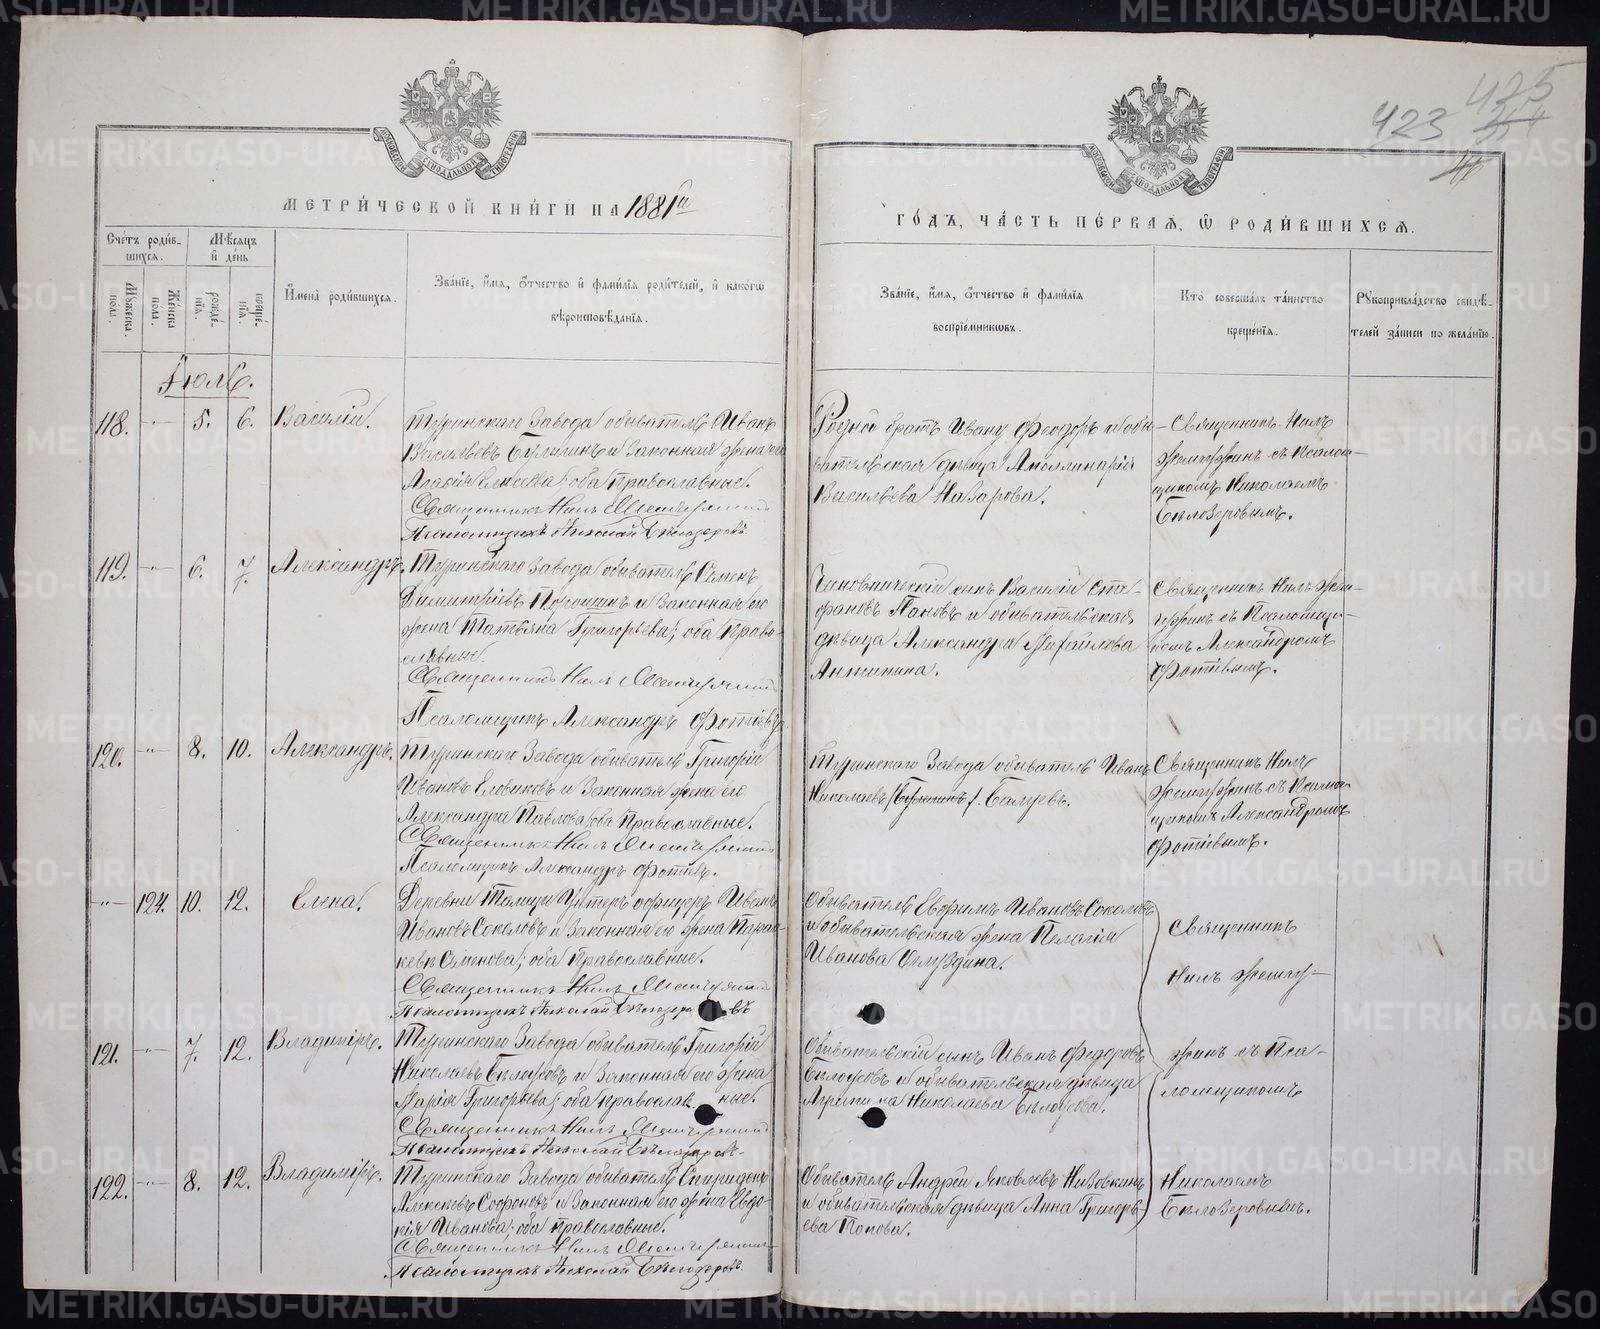 423 425
МЕТРИ́ЧЕСКОЙ КНИ́ГИ НА 1881й
ГО́ДЪ, ЧА́СТЬ ПЕ́РВАѦ, Ѿ РОДИ́ВШИХСѦ.
Сче́тъ роди́в-
шихсѧ.
Мѣ́сѧцъ
и҆ де́нь
И҆мена̀ роди́вшихсѧ.
Зва́нїе, и҆́мѧ, о҆́тчество и҆ фами́лїѧ роди́телей, и҆ како́гѡ
вѣроисповѣ́данїѧ.
Зва́нїе, и҆́мѧ, о҆́тчество и҆ фами́лїѧ
воспрїе́мникѡвъ.
Кто̀ соверша́лъ та́инство
креще́нїѧ.
Рꙋкоприкла́дство свидѣ́-
телей за́писи по жела́нїю.
Мꙋ́жеска по́ла.
Же́нска по́ла.
рожде́-
нїѧ.
креще́-
нїѧ.
Іюль.
118. -"- 5. 6. Василій.
Туринскаго Завода обыватель Иванъ
Васильевъ Булыгинъ и законная жена его
Агафія Елисеева; оба Православные.
Священникъ Нилъ
Псаломщикъ Николай Бѣлозеровъ
Родной братъ Ивану Феодоръ и обы-
вательская дѣвица Аполлинарія
Васильева Назарова.
Священникъ Нилъ
съ Псалом-
щикомъ Николаемъ
Бѣлозеровымъ.
119. -"- 6. 7. Александръ.
Туринскаго Завода обыватель Семенъ
Димитріевъ и законная его
жена Татьяна Григорьева; оба Право-
славные.
Священникъ Нилъ
Псаломщикъ Александръ Фотіевъ.
Чиновническій сынъ Василій Сте-
фановъ Пановъ и обывательская
дѣвица Александра Михайлова
Антипина.
Священникъ Нилъ
съ Псаломщи-
комъ Александромъ
Фотіевымъ.
120. -"- 8. 10. Александръ.
Туринскаго Завода обыватель Григорій
Ивановъ Еловиковъ и законная жена его
Александра Павлова; оба Православные.
Священникъ Нилъ
Псаломщикъ Александръ Фотіевъ.
Туринскаго Завода обыватель Иванъ
Николаевъ Балуевъ.
Священникъ Нилъ
съ Псалом-
щикомъ Александромъ
Фотіевымъ.
-"- 124. 10. 12. Елена.
Деревни Талицы Унтеръ офицеръ Иванъ
Ивановъ Соколовъ и законная его жена Парас-
кева Семенова; оба Православные.
Священникъ Нилъ
Псаломщикъ Николай Бѣлозеровъ
Обыватель Ефримъ Ивановъ Соколовъ
и обывательская жена Пелагія
Иванова
Священникъ
Нилъ
121. -"- 7. 12. Владиміръ.
Туринскаго Завода обыватель Григорій
Николаевъ Бѣлоусовъ и законная его жена
Марія Григорьева; оба православные.
Священникъ Нилъ
Псаломщикъ Николай Бѣлозеровъ.
Обывательскій сынъ Иванъ Федоровъ
Бѣлоусовъ и обывательская дѣвица
Николаева Бѣлоусова.
съ Пса-
ломщикомъ
122. -"- 8. 12. Владиміръ.
Туринскаго Завода обыватель Спиридонъ
Алексѣевъ Софоновъ и законная его жена Евдо-
кія Иванова; оба православные.
Священникъ Нилъ
Псаломщикъ Николай Бѣлозеровъ.
Обыватель Андрей Яковлевъ Низовкинъ
и обывательская дѣвица Анна Григорь-
ева Попова.
Николаемъ
Бѣлозеровымъ.
METRIKI.GASO-URAL.RU